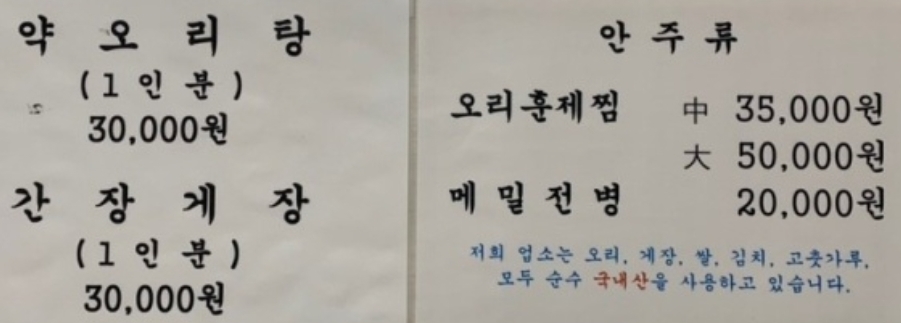 약 오 리 탕
( 1 인 분 )
30,000원
간 장 게 장
( 1 인 분 )
30,000원
안 주 류
오리훈제찜 中 35,000원
大 50,000원
메 밀 전 병 20,000원
저희 업소는 오리, 게장, 쌀, 김치, 고춧가루,
모두 순수 국내산을 사용하고 있습니다.